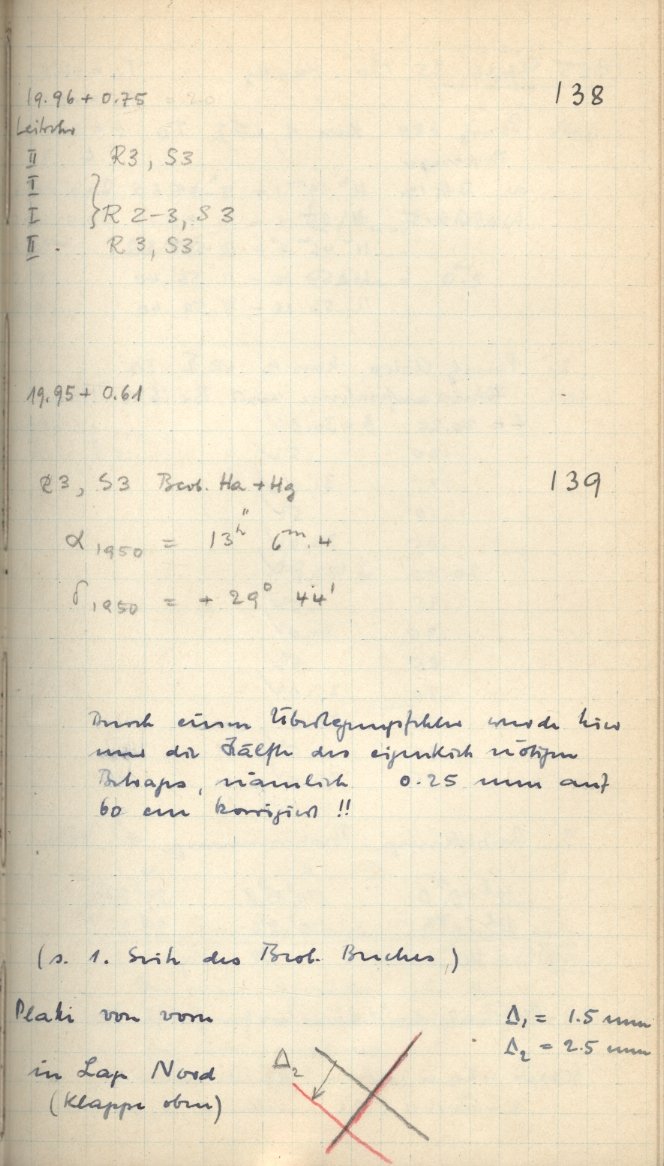 19.96 + 0.75 = 20
138
Leitstr
II R3, S3
I
I } R 2-3, S 3
II . R 3, S3
19.95 + 0.61
R3, S3 Beob. Ha + Hg
139
α 1950 = 13h 6m.4
δ 1950 = + 29° 44'
Durch einen Überlegungsfehler wurde hier
nur die Hälfte des eigentlich nötigen
Betrags, nämlich 0.25 mm auf
60 cm korrigiert !!
(s. 1. Seite des Beob. Buches)
Platte von vorn
Δ1 = 1.5 mm
Δ2 = 2.5 mm
Δ2
in Lage Nord
(Klappe oben)